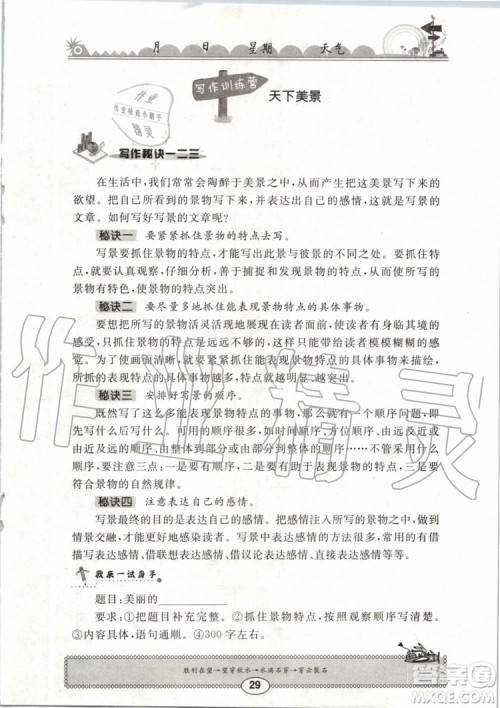 月 日 星期 天气
写作训练营
天下美景
作业
作业检查小助手
精灵
写作秘诀一二三
在生活中，我们常常会陶醉于美景之中，从而产生把这美景写下来的
欲望。把自己看到的、感受到的景物写下来，并表达出自己的感情，这就是写景的
文章。如何写好写景的文章呢？
秘诀一 要紧紧抓住景物的特点去写。
写景要抓住特点，也就是要抓住这一景与彼景的不同之处。要抓住特
点，就要认真观察，仔细分析，善于捕捉和发现景物的特点，从普遍的景
物中发现特点。
秘诀二 要尽量多地抓住能表现景物特点的具体事物。
要想把所写的景物活灵活现地展现在读者面前，使读者有身临其境的感
受，只抓住景物的特点是远远不够的，这样只能给读者模模糊糊的感
觉。为了把景物写具体，就要紧紧抓住体现这一特点的具体事物来描绘，
所抓的表现特点的具体事物越多，特点就越明显，给人的印象就越深。
秘诀三 安排好写景的顺序。
既然写了这么多的景物，那么，就要有一定的顺序，也就是要知道先写
什么后写什么。可用的顺序很多，如由上到下或由下到上，由远及近或
由近及远，由整体到部分或由部分到整体等。不管用什么顺序，只要能
顺理成章即可。安排顺序要注意三点：一要有利于表现景物特点，二要有主有次，三要符合
景物的自然规律。
秘诀四 注意表达自己的感情。
写景最终的目的是表达感情，把感情注入所写的景物之中，做到情
景交融，才能更好地感染读者。写景中表达感情的方法有很多，如直接表
达感情、借联想表达感情、借议论表达感情、借拟人表达感情等。
我来一试身手
题目：美丽的
要求：①把题目补充完整。②抓住景物特点，按一定顺序写。③内容
具体，语句通顺。④300字左右。
胜利在望→望穿秋水→水滴石穿→穿云裂石
29
作业精灵
答案圈
MXQE.COM